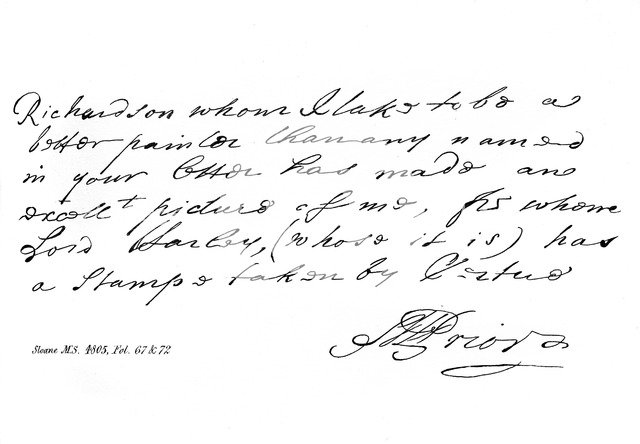 Richardson whom I take to be a
better painter than any named
in your letter has made an
excellt picture of me, from whome
Lord Harley, (whose it is) has
a Stampe taken by Vertue
MPrior
Sloane MS. 4805, Fol. 67 & 72